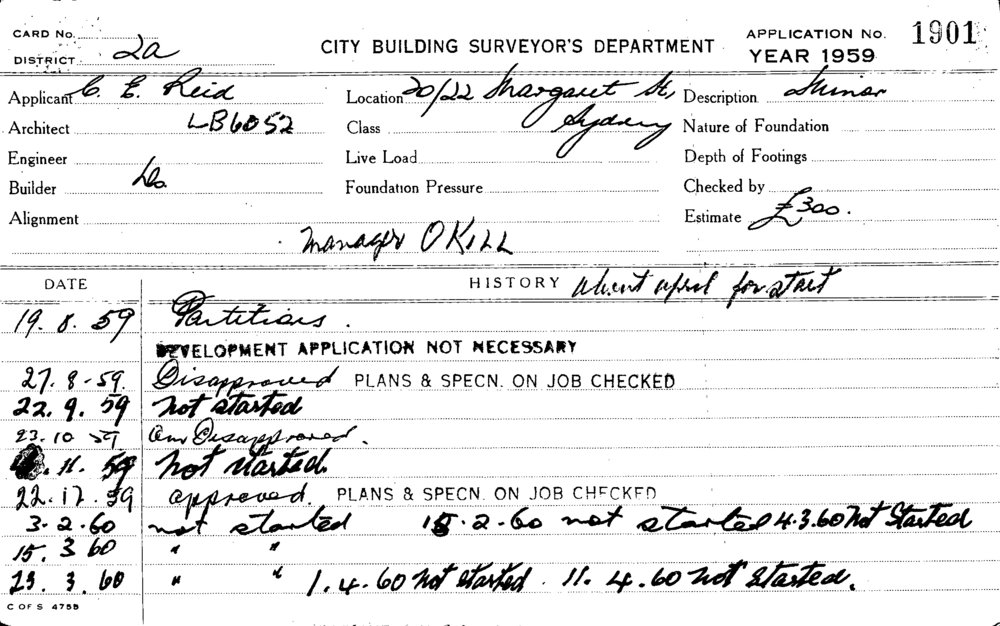 CARD No.
DISTRICT 2a
CITY BUILDING SURVEYOR'S DEPARTMENT
APPLICATION No. 1901
YEAR 1959
Applicant C. E. Reid Location 20/22 Margaret St, Sydney Description Minor
Architect LB6052 Class Nature of Foundation
Engineer Live Load Depth of Footings
Builder Do. Foundation Pressure Checked by
Alignment Estimate £300.
Manager OKILL
DATE HISTORY about april for start
19. 8. 59 Partitions.
DEVELOPMENT APPLICATION NOT NECESSARY
27. 8-59. Disapproved PLANS & SPECN. ON JOB CHECKED
22. 9. 59 not started
23. 10 59 Disapproved.
. 11. 59 not started.
22. 12. 59 approved. PLANS & SPECN. ON JOB CHECKED
3. 2. 60 not started 15. 2. 60 not started 4.3.60 Not Started
15. 3 60 " "
23. 3. 60 " " 1. 4. 60 not started. 11. 4. 60 not started.
C OF S 475B